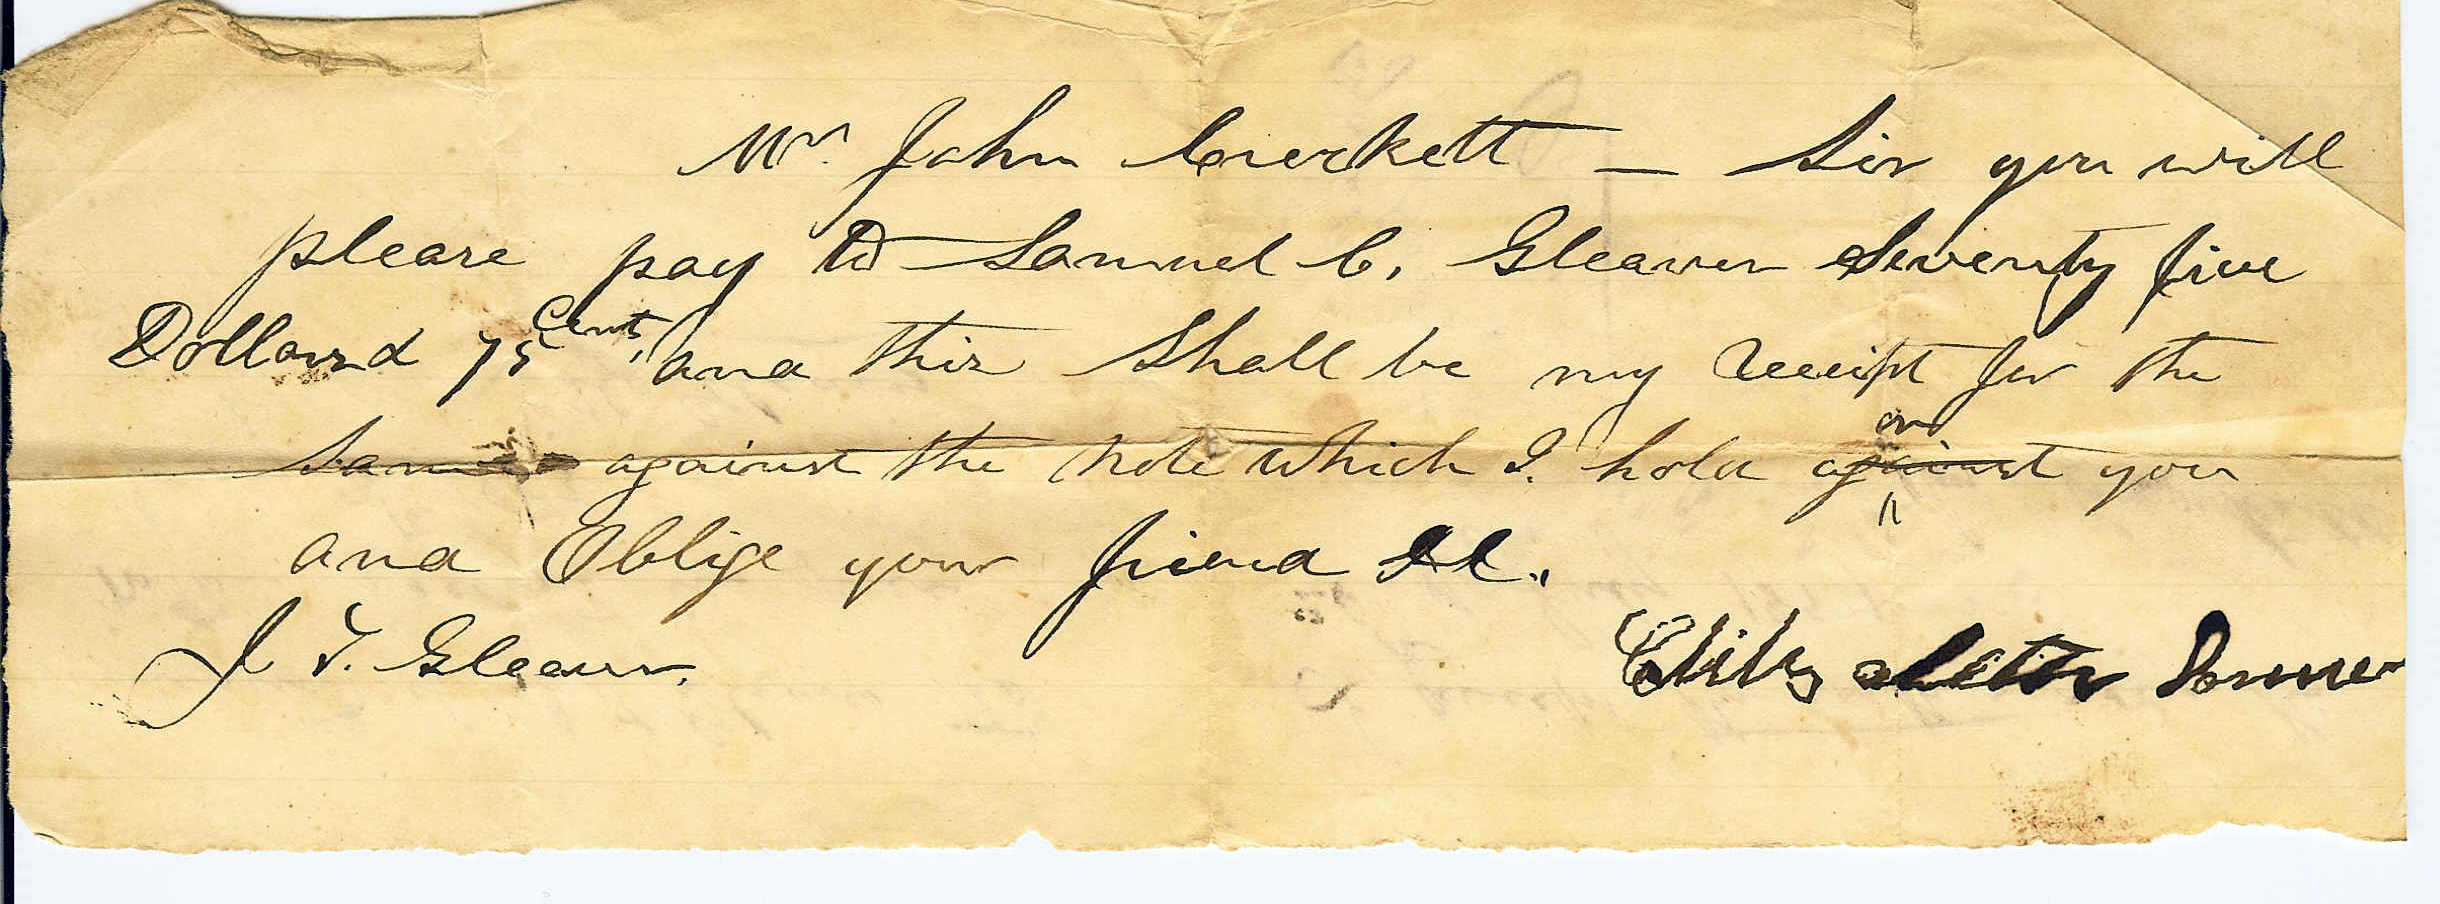 Mr. John Crockett — Sir you will
please pay to Samuel C. Gleaves Seventy five
Dollars & 75 Cents, and this Shall be my Receipt for the
same against the Note which I. hold on you
and Oblige your friend &C.,
J. T. Gleaves.